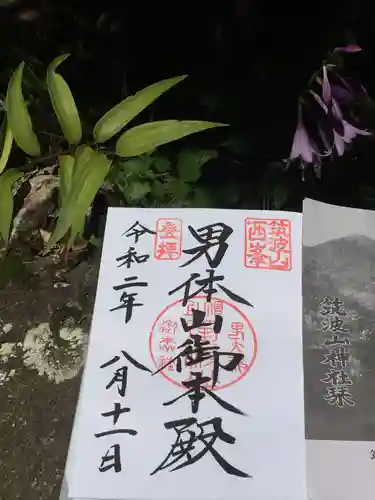 筑波山
西峯
登拝
男体山御本殿
令和二年 八月十一日
筑波山神社栞